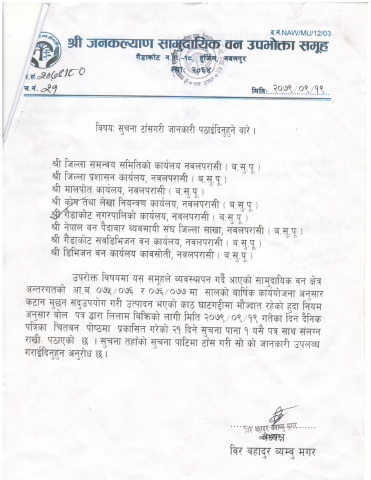 द.नं.NAW/MU/12/03
श्री जनकल्याण सामुदायिक वन उपभोक्ता समूह
गैंडाकोट न.पा.-१८, नवलपुर
स्था: २०६४
च.नं. २९
मिति: २०७९/०९/१९
विषय: सुचना टाँसगरी जानकारी पठाईदिनुहुने बारे ।
श्री जिल्ला समन्वय समितिको कार्यालय नवलपरासी ( ब.सु.पू )
श्री जिल्ला प्रशासन कार्यालय, नवलपरासी ( ब.सु.पू )
श्री मालपोत कार्यालय, नवलपरासी ( ब.सु.पू )
श्री कोष तथा लेखा नियन्त्रण कार्यालय, नवलपरासी ( ब.सु.पू )
श्री गैंडाकोट नगरपालिको कार्यालय, नवलपरासी ( ब.सु.पू )
श्री नेपाल वन पैदावार व्यवसायी संघ जिल्ला साखा, नवलपरासी ( ब.सु.पू )
श्री गैंडाकोट सवडिभिजन वन कार्यालय, नवलपरासी ( ब.सु.पू )
श्री डिभिजन वन कार्यालय कावसोती, नवलपरासी ( ब.सु.पू )
उपरोक्त विषयमा यस समूहले व्यवस्थापन गर्दै आएको सामुदायिक वन क्षेत्र
अन्तरगतको आ.व. ०७५/०७६ र ०७६/०७७ मा सालको बार्षिक कार्ययोजना अनुसार
कटान मुछान सदुउपयोग गरी उत्पादन भएको काठ घाटगद्दीमा मौज्दात रहेको हुदा नियम
अनुसार बोल पत्र द्वारा लिलाम बिक्रिको लागी मिति २०७९/०९/१९ गतेका दिन दैनिक
पत्रिका चितवन पोष्ठमा प्रकासित गरेको २१ दिने सुचना पाना १ यसै पत्र साथ संलग्न
राखी पठाएको छ । सुचना तहाँको सुचना पाटिमा टाँस गरी सो को जानकारी उपलब्ध
गराईदिनुहुन अनुरोध छ ।
अध्यक्ष
विर बहादुर ब्यम्वु मगर